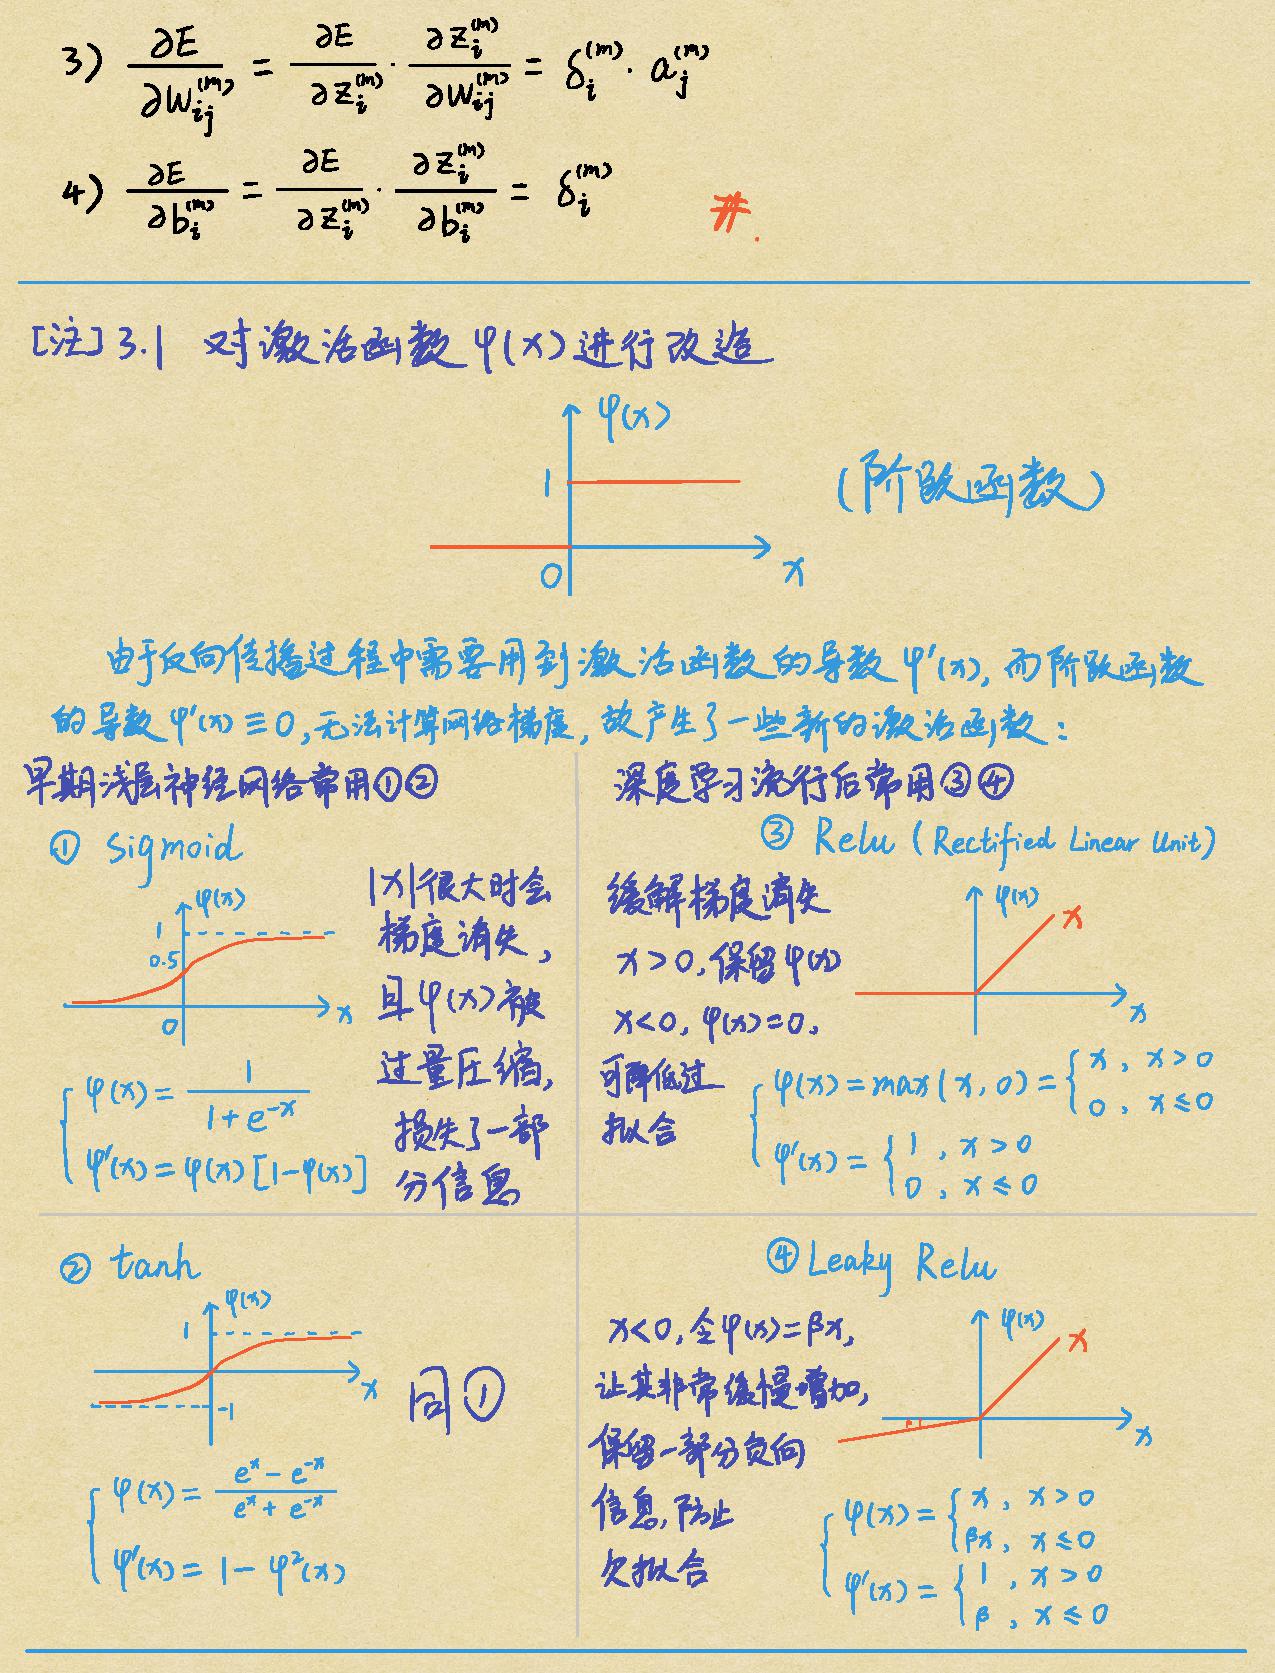 3) ∂E/∂W_ij^(m) = ∂E/∂z_i^(m) · ∂z_i^(m)/∂W_ij^(m) = δ_i^(m) · a_j^(m)
4) ∂E/∂b_i^(m) = ∂E/∂z_i^(m) · ∂z_i^(m)/∂b_i^(m) = δ_i^(m)
#.
[注]3.1 对激活函数φ(x)进行改造
φ(x)
1
(阶跃函数)
0
x
由于反向传播过程中需要用到激活函数的导数φ'(x), 而阶跃函数
的导数φ'(x)≡0, 无法计算网络梯度, 故产生了一些新的激活函数:
早期浅层神经网络常用①②
① sigmoid
φ(x)
1
0.5
0
x
|x|很大时会
梯度消失,
且φ(x)被
过量压缩,
损失了一部
分信息
φ(x) = 1/(1+e^-x)
φ'(x) = φ(x)[1-φ(x)]
深度学习流行后常用③④
③ Relu (Rectified Linear Unit)
缓解梯度消失
x>0, 保留φ(x)
x<0, φ(x)=0,
可降低过
拟合
φ(x)
x
x
φ(x) = max(x, 0) = { x, x>0
0, x≤0
φ'(x) = { 1, x>0
0, x≤0
② tanh
φ(x)
1
x
-1
同①
φ(x) = (e^x - e^-x)/(e^x + e^-x)
φ'(x) = 1-φ²(x)
④ Leaky Relu
x<0, 令φ(x)=βx,
让其非常缓慢增加,
保留一部分负向
信息, 防止
欠拟合
φ(x)
x
x
φ(x) = { x, x>0
βx, x≤0
φ'(x) = { 1, x>0
β, x≤0